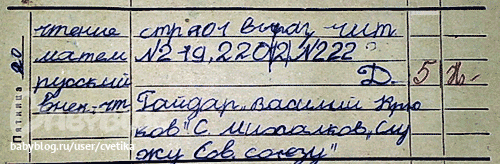 Пятница 20
чтение стр 101 выраз. чит.
матем №219, 220(2), №222
русский Д. 5
внек. чт. Гайдар „Василий Крю
ков" С. Михалков „Слу
жу Сов. союзу"
babyblog.ru/user/cvetika